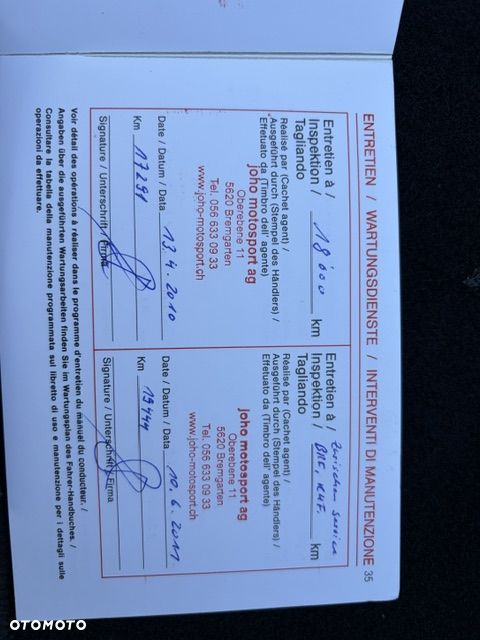 ENTRETIEN / WARTUNGSDIENSTE / INTERVENTI DI MANUTENZIONE 35
Entretien à /
Inspektion / 18'000 km
Tagliando
Réalisé par (Cachet agent) /
Ausgeführt durch (Stempel des Händlers) /
Effetuato da (Timbro dell' agente)
joho motosport ag
Oberebene 11
5620 Bremgarten
Tel. 056 633 09 33
www.joho-motosport.ch
Date / Datum / Data 13.4.2010
Km 17291
Signature / Unterschrift / Firma
Entretien à / Zwischen Service
Inspektion / km
Tagliando
Réalisé par (Cachet agent) /
Ausgeführt durch (Stempel des Händlers) /
Effetuato da (Timbro dell' agente)
joho motosport ag
Oberebene 11
5620 Bremgarten
Tel. 056 633 09 33
www.joho-motosport.ch
Date / Datum / Data 10.6.2011
Km 19444
Signature / Unterschrift / Firma
Voir détail des opérations à réaliser dans le programme d'entretien du manuel du conducteur. /
Angaben über die ausgeführten Wartungsarbeiten finden Sie im Wartungsplan des Fahrer-Handbuches. /
Consultare la tabella della manutenzione programmata sul libretto di uso e manutenzione per i dettagli sulle
operazioni da effettuare.
OTOMOTO